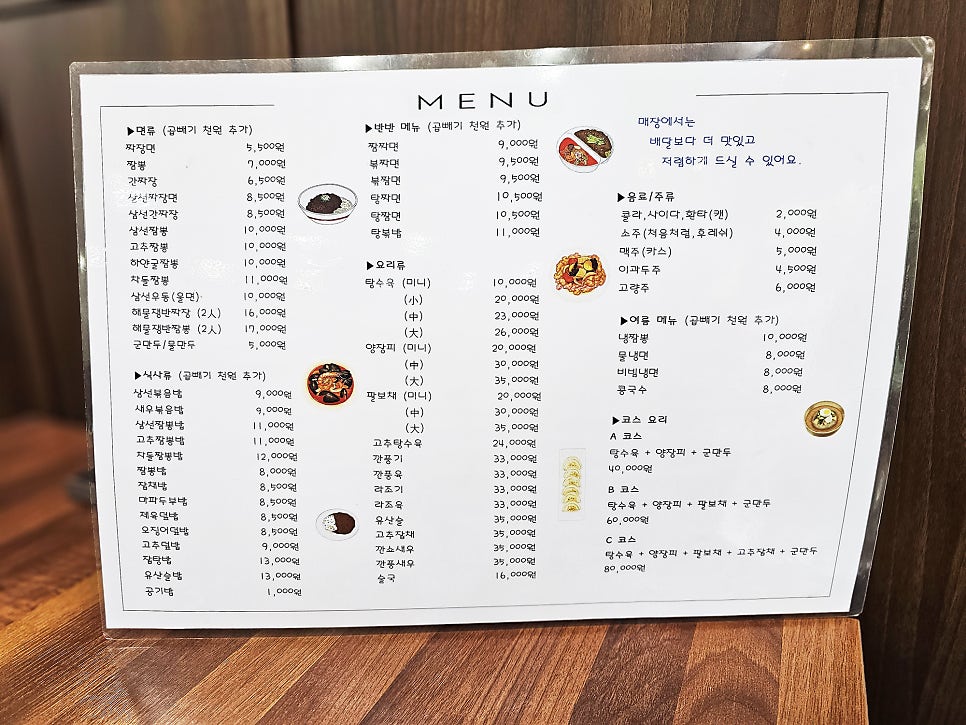 MENU
▶면류 (곱빼기 천원 추가)
짜장면 5,500원
짬뽕 7,000원
간짜장 6,500원
삼선짜장면 8,500원
삼선간짜장 8,500원
삼선짬뽕 10,000원
고추짬뽕 10,000원
하얀굴짬뽕 10,000원
차돌짬뽕 11,000원
삼선우동(울면) 10,000원
해물쟁반짜장 (2人) 16,000원
해물쟁반짬뽕 (2人) 17,000원
군만두/물만두 5,000원
▶식사류 (곱빼기 천원 추가)
삼선볶음밥 9,000원
새우볶음밥 9,000원
삼선짬뽕밥 11,000원
고추짬뽕밥 11,000원
차돌짬뽕밥 12,000원
짬뽕밥 8,000원
잡채밥 8,500원
마파두부밥 8,500원
제육덮밥 8,500원
오징어덮밥 8,500원
고추덮밥 9,000원
잡탕밥 13,000원
유산슬밥 13,000원
공기밥 1,000원
▶반반 메뉴 (곱빼기 천원 추가)
짬짜면 9,000원
볶짜면 9,500원
볶짬면 9,500원
탕짜면 10,500원
탕짬면 10,500원
탕볶밥 11,000원
▶요리류
탕수육 (미니) 10,000원
(小) 20,000원
(中) 23,000원
(大) 26,000원
양장피 (미니) 20,000원
(中) 30,000원
(大) 35,000원
팔보채 (미니) 20,000원
(中) 30,000원
(大) 35,000원
고추탕수육 24,000원
깐풍기 33,000원
깐풍육 33,000원
라조기 33,000원
라조육 33,000원
유산슬 35,000원
고추잡채 35,000원
깐쇼새우 35,000원
깐풍새우 35,000원
술국 16,000원
매장에서는
배달보다 더 맛있고
저렴하게 드실 수 있어요.
▶음료/주류
콜라,사이다,환타(캔) 2,000원
소주(처음처럼,후레쉬) 4,000원
맥주(카스) 5,000원
이과두주 4,500원
고량주 6,000원
▶여름 메뉴 (곱빼기 천원 추가)
냉짬뽕 10,000원
물냉면 8,000원
비빔냉면 8,000원
콩국수 8,000원
▶코스 요리
A 코스
탕수육 + 양장피 + 군만두
40,000원
B 코스
탕수육 + 양장피 + 팔보채 + 군만두
60,000원
C 코스
탕수육 + 양장피 + 팔보채 + 고추잡채 + 군만두
80,000원